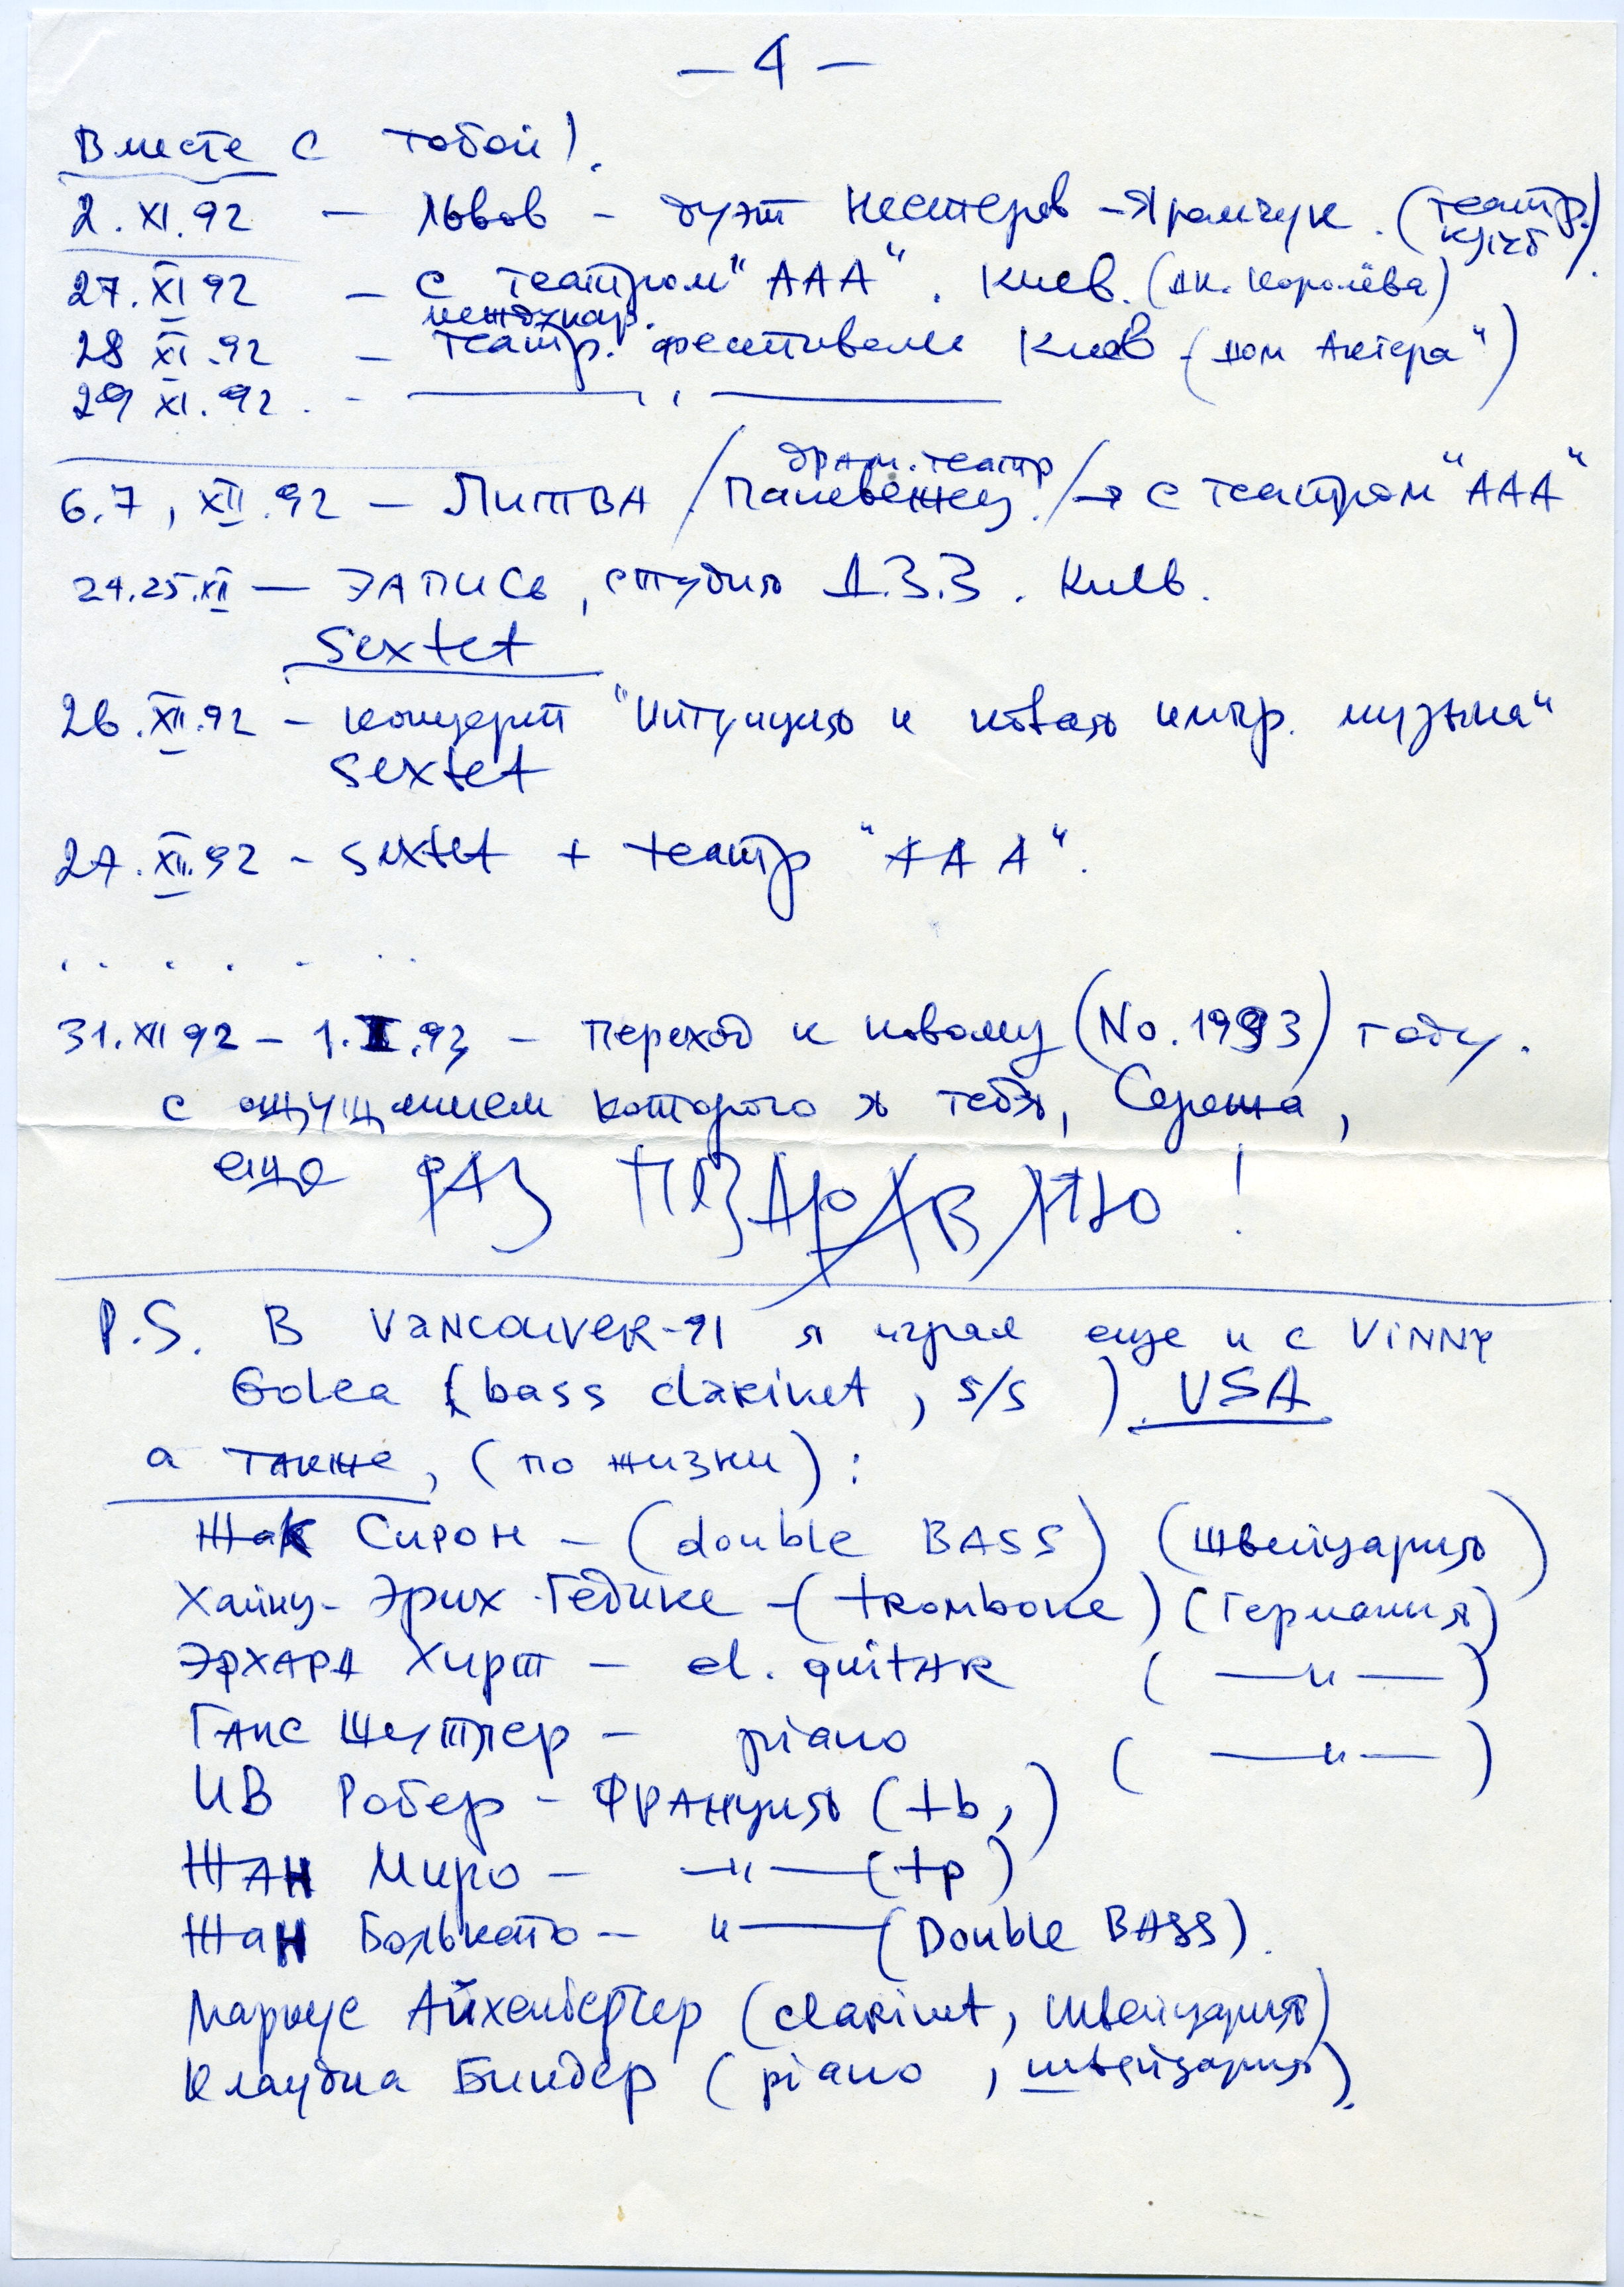 — 4 —
Вместе с тобой!.
2. XI. 92 — Львов – дуэт Нестеров – Ярамчук. (театр.
клуб).
27. XI 92 — с театром "ААА". Киев. (ДК. Королёва)
междунар.
28 XI. 92 — театр. фестиваль Киев ("Дом Актера")
29 XI. 92. - ——— " ———
драм. театр
6.7, XII. 92 — Литва / Паневежец / → с театром "ААА"
24.25. XII — Запись, студия Д.З.З. Киев.
Sextet
26. XII. 92 – концерт "Интуиция и новая импр. музыка"
Sextet
27. XII. 92 – sextet + театр "ААА".
. . . . . . .
31. XII 92 – 1. I. 93 – переход к новому (No. 1993) году.
с ощущением которого я тебя, Сережа,
еще РАЗ ПОЗДРАВЛЯЮ!
P.S. В VANCOUVER-91 я играл еще и с VINNY
Golea (bass clarinet, s/s) USA
а также, (по жизни):
Жак Сирон – (double BASS) (Швейцария)
Хайнц-Эрих Гедике – (trombone) (Германия)
Эрхард Хирт – el. guitar ( —"— )
Ганс – piano ( —"— )
Ив Робер – Франция (tb,)
Жан Миро – —"— (tp)
Жан Болькато – "— (Double BASS).
Маркус Айхенбергер (clarinet, Швейцария)
Клаудиа Биндер (piano, Швейцария).